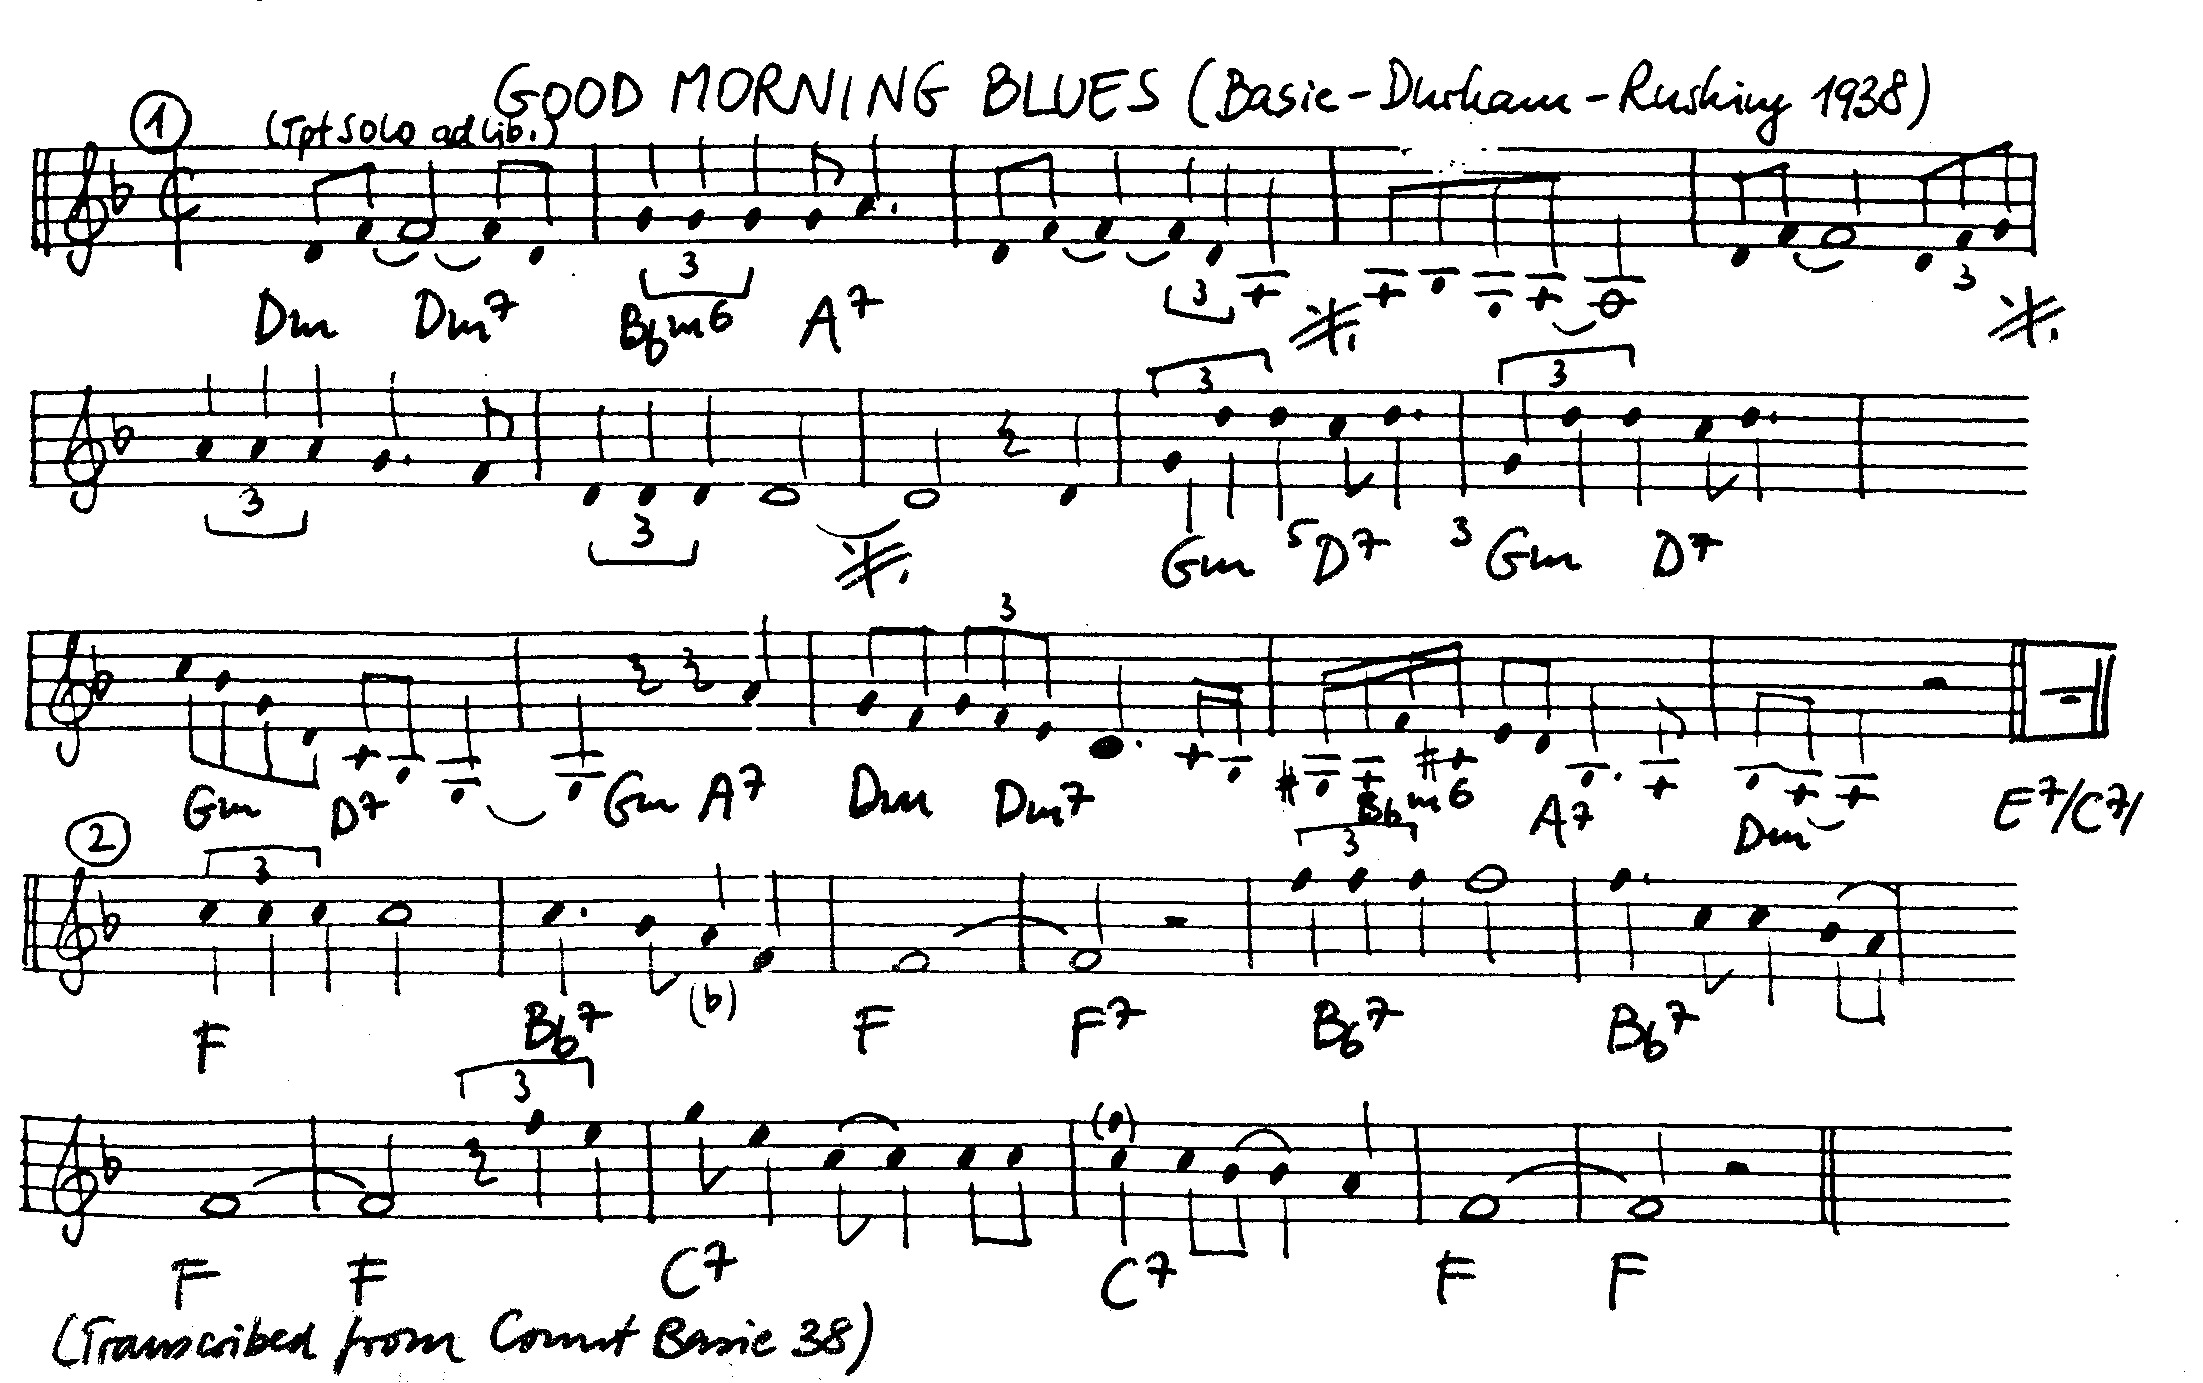 GOOD MORNING BLUES (Basie-Durham-Rushing 1938)
1 (Tpt SOLO ad lib.)
3 3 3
Dm Dm7 Bbm6 A7
3 3
3 3
Gm 5 D7 3 Gm D7
3
Gm D7 Gm A7 Dm Dm7 Bbm6 A7 Dm E7/C7/
2
3 3
(b)
F Bb7 F F7 Bb7 Bb7
3
F F C7 C7 F F
(Transcribed from Count Basie 38)